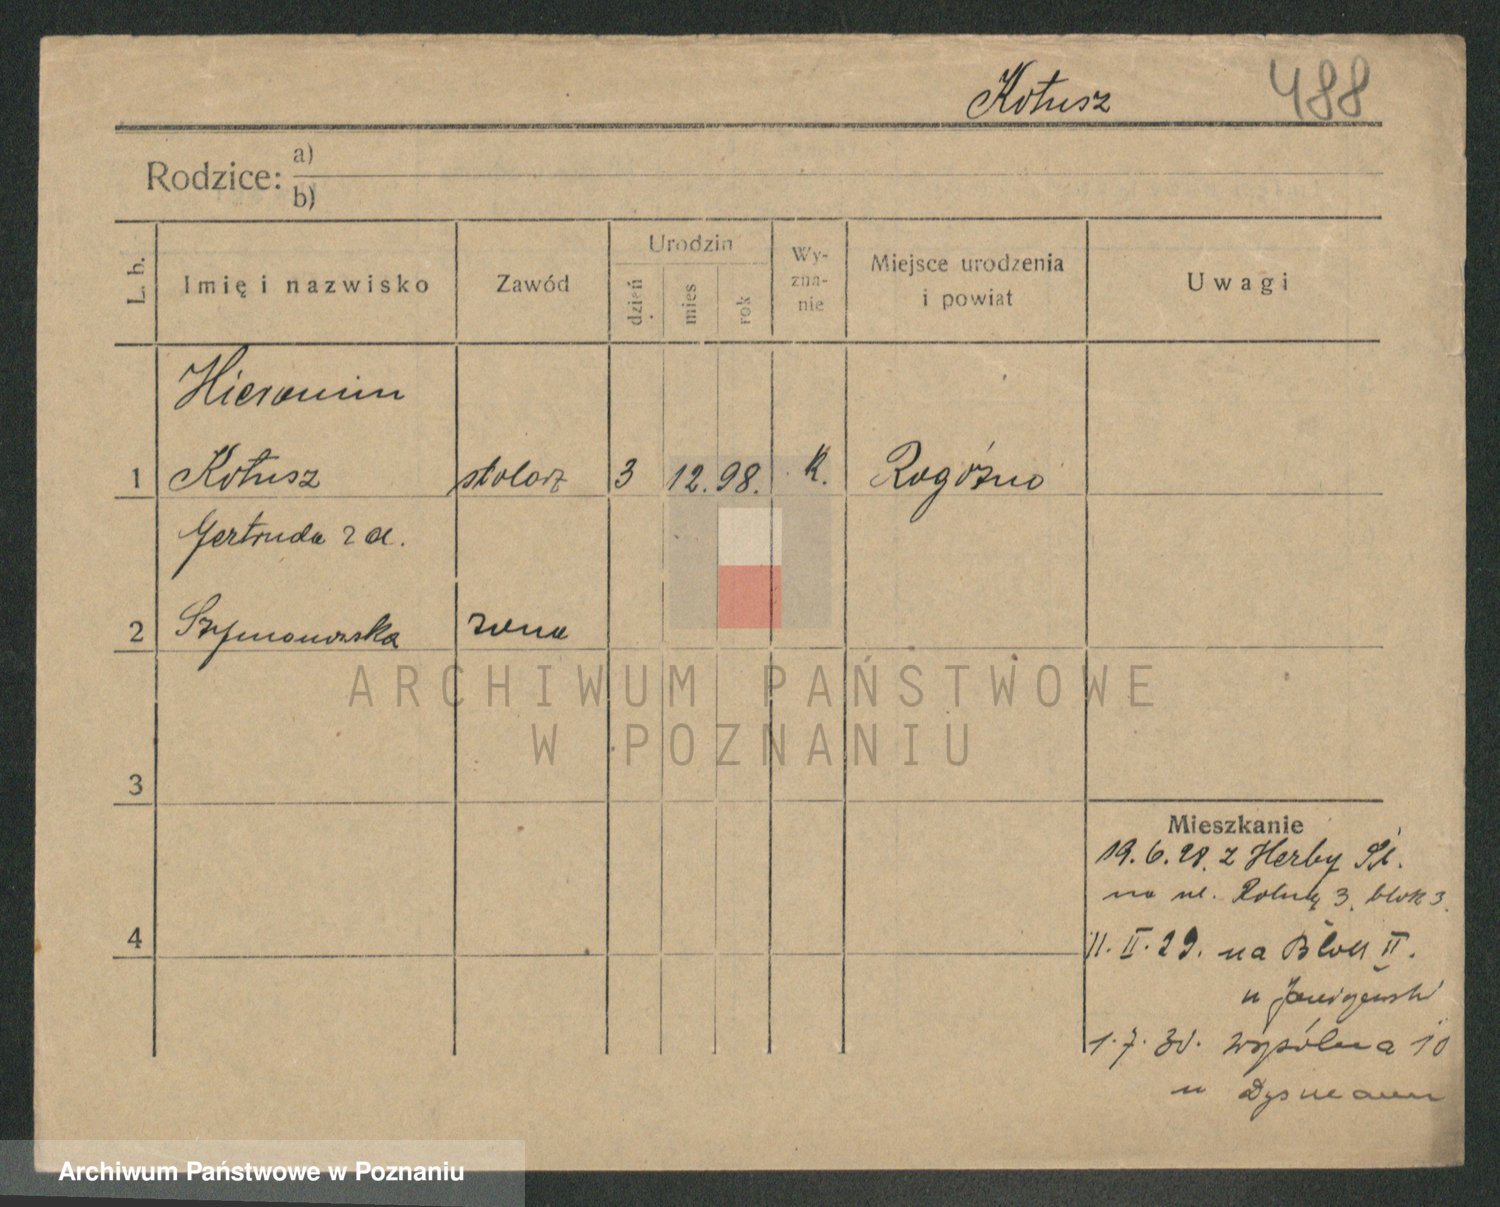 Kotusz 488
Rodzice: a)
b)
L. b. Imię i nazwisko Zawód Urodzin dzień mies rok Wy-zna-nie Miejsce urodzenia i powiat Uwagi
Hieronim
1 Kotusz stolarz 3 12. 98. k. Rogóżno
Gertruda z d.
2 Szymanowska żona
ARCHIWUM PAŃSTWOWE
W POZNANIU
3
4
Mieszkanie
19. 6. 28. z Herby Śl.
na ul. Rolną 3. blok 3.
11. II. 29. na Blok II.
u
1. 7. 30. Wspólna 10
u
Archiwum Państwowe w Poznaniu